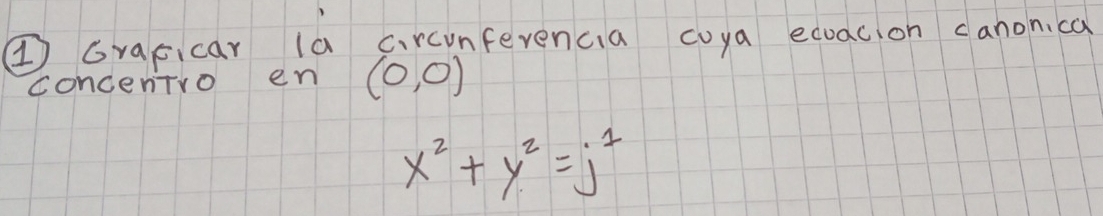 ① Graficar la circunferencia cuya ecuacion canonica
concentro en (0,0)
x² + y² = j¹